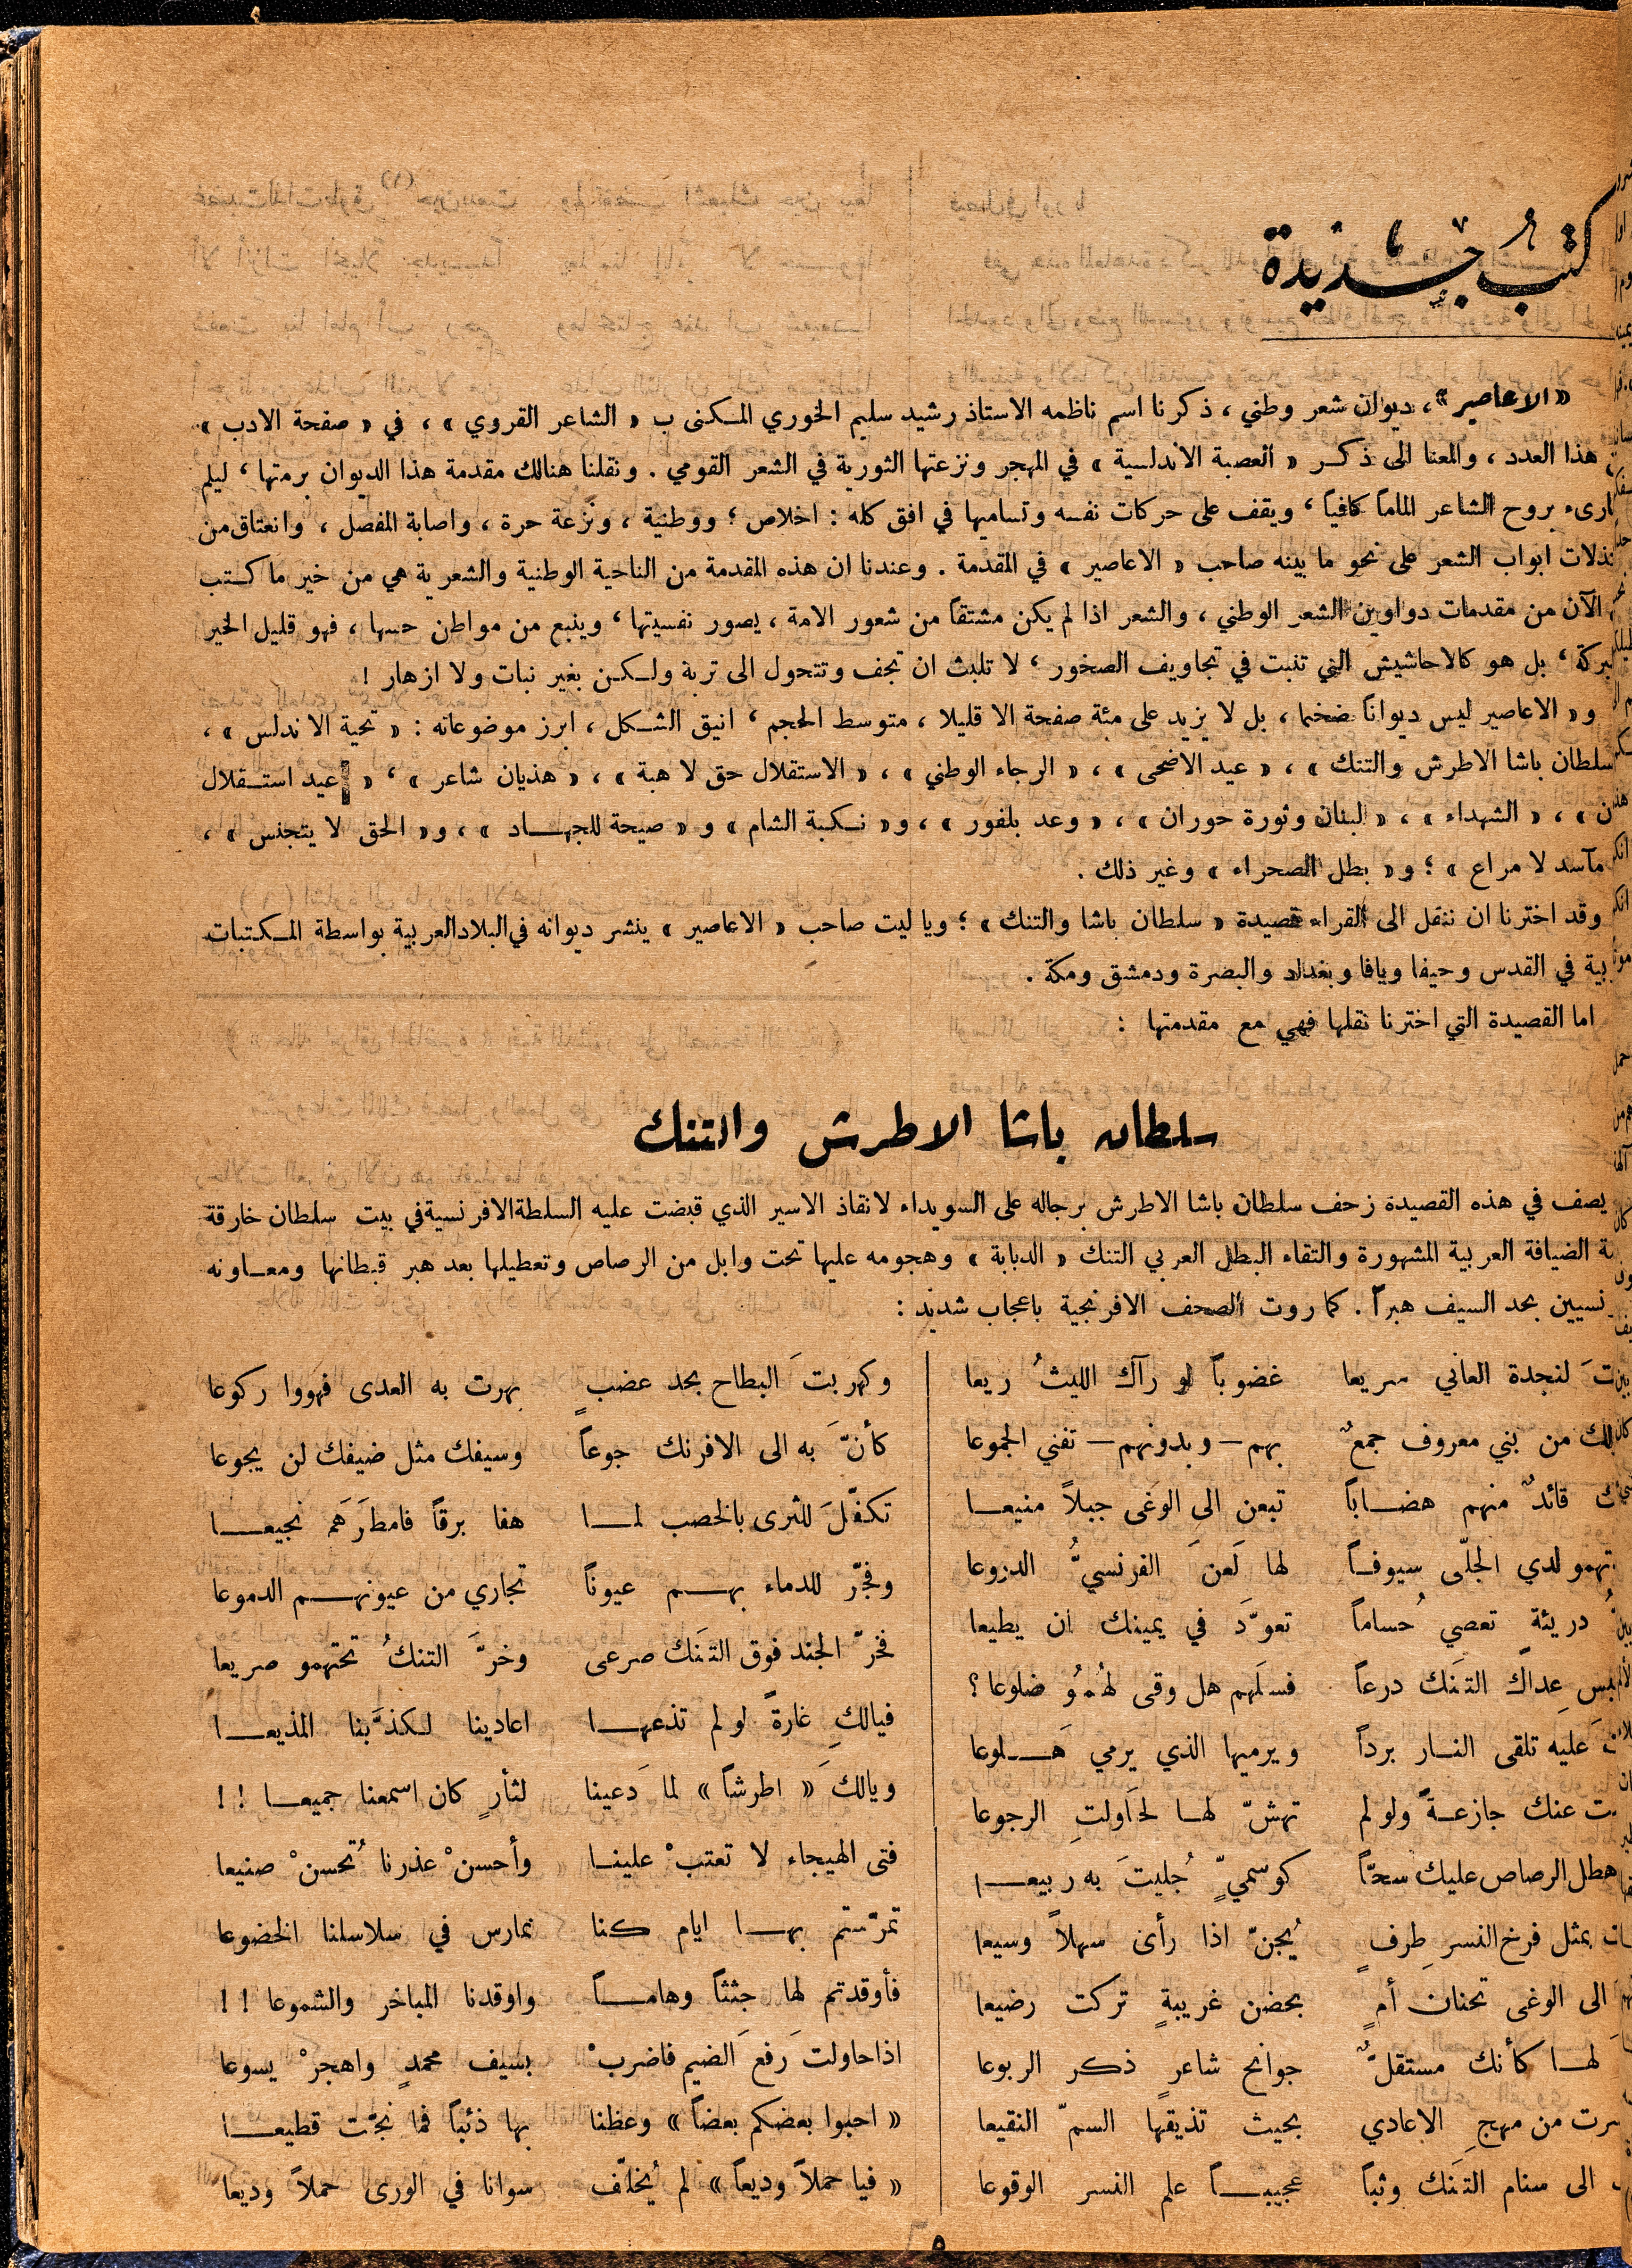 كتب جديدة
«الاعاصير»، ديوان شعر وطني، ذكرنا اسم ناظمه الاستاذ رشيد سليم الخوري المكنى ب «الشاعر القروي»، في «صفحة الادب»
هذا العدد، والمعنا الى ذكر «العصبة الاندلسية» في المهجر ونزعتها الثورية في الشعر القومي. ونقلنا هنالك مقدمة هذا الديوان برمتها، ليلم
بروح الشاعر الماماً كافياً، ويقف على حركات نفسه وتساميها في افق كله: اخلاص؛ ووطنية، ونزعة حرة، واصابة المفصل، وانعتاق من
ابواب الشعر على نحو ما بينه صاحب «الاعاصير» في المقدمة. وعندنا ان هذه المقدمة من الناحية الوطنية والشعرية هي من خير ما كتب
الآن من مقدمات دواوين الشعر الوطني، والشعر اذا لم يكن مشتقاً من شعور الامة، يصور نفسيتها، وينبع من مواطن حسها، فهو قليل الخير
بل هو كالاحاشيش التي تنبت في تجاويف الصخور، لا تلبث ان تجف وتتحول الى تربة ولكن بغير نبات ولا ازهار!
و«الاعاصير ليس ديواناً ضخما، بل لا يزيد على مئة صفحة الا قليلا، متوسط الحجم، انيق الشكل، ابرز موضوعاته: «تحية الاندلس»،
سلطان باشا الاطرش والتنك»، «عيد الاضحى»، «الرجاء الوطني»، «الاستقلال حق لا هبة»، «هذيان شاعر»، «عيد استقلال
»، «الشهداء»، «لبنان وثورة حوران»، «وعد بلفور»، و«نكبة الشام» و«صيحة للجهاد»، و«الحق لا يتجنس»،
مآسد لا مراع»؛ و«بطل الصحراء» وغير ذلك.
وقد اخترنا ان ننقل الى القراء قصيدة «سلطان باشا والتنك»؛ ويا ليت صاحب «الاعاصير» ينشر ديوانه في البلاد العربية بواسطة المكتبات
في القدس وحيفا ويافا وبغداد والبصرة ودمشق ومكة.
اما القصيدة التي اخترنا نقلها فهي مع مقدمتها:
سلطان باشا الاطرش والتنك
يصف في هذه القصيدة زحف سلطان باشا الاطرش برجاله على السويداء لانقاذ الاسير الذي قبضت عليه السلطة الافرنسية في بيت سلطان خارقة
الضيافة العربية المشهورة والتقاء البطل العربي التنك «الدبابة» وهجومه عليها تحت وابل من الرصاص وتعطيلها بعد هبر قبطانها ومعاونه
بحد السيف هبراً. كما روت الصحف الافرنجية باعجاب شديد:
لنجدة العاني سريعا غضوباً لو رآك الليثُ ريعا
من بني معروف جمعٌ بهم — وبدونهم — تفني الجموعا
قائدٌ منهم هضاباً تبعن الى الوغى جبلاً منيعا
لدى الجلّى سيوفاً لها لَعنَ الفرنسيُّ الدروعا
دريئة تعصي حُساماً تعوّدَ في يمينك ان يطيعا
عِداكَ التنَك درعاً فسلَهم هل وقى لهُموُ ضلوعا؟
عليه تلقى النار برداً ويرميها الذي يرمي هَلوعا
عنك جازعةً ولو لم تهشّ لها لحاوَلتِ الرجوعا
هطل الرصاص عليك سحّاً كوسميٍّ جُليتَ به ربيعا
بمثل فرخ النسرِ طِرفٍ يُجنّ اذا رأى سهلاً وسيعا
الى الوغى تحنان أمٍ بحضن غريبةٍ تركت رضيعا
لها كأنك مستقلٌّ جوانح شاعرٍ ذكر الربوعا
من مهج الاعادي بحيث تذيقها السمّ النقيعا
الى سنام التنَك وثباً عجيباً علم النسر الوقوعا
وكهربتَ البطاح بحد عضبٍ بهرت به العدى فهَووا ركوعا
كأنّ به الى الافرنك جوعاً وسيفك مثل ضيفك لن يجوعا
تكفّلَ للثرى بالخصب لما هفا برقاً فامطرَهم نجيعا
وفجّر للدماء بهم عيوناً تجاري من عيونهم الدموعا
فخرّ الجند فوق التنَك صرعى وخرَّ التنكُ تحتهمو صريعا
فيالكِ غارةً لو لم تذعها اعادينا لكذَّبنا المذيعا
ويالكَ «اطرشاً» لما دَعينا لثأرٍ كان اسمعنا جميعا!!
فتى الهيجاء لا تعتبْ علينا وأحسنْ عذرنا تُحسنْ صنيعا
تمرّستم بها ايام كنا نمارس في سلاسلنا الخضوعا
فأوقدتم لها جثثاً وهاماً واوقدنا المباخر والشموعا!!
اذا حاولتَ رَفعَ الضيم فاضربْ بسيف محمدٍ واهجرْ يسوعا
«احبوا بعضكم بعضاً» وعظنا بها ذئباً فما نجّت قطيعا
«فيا حملاً وديعاً» لم يُخلّف سوانا في الورى حملاً وديعا